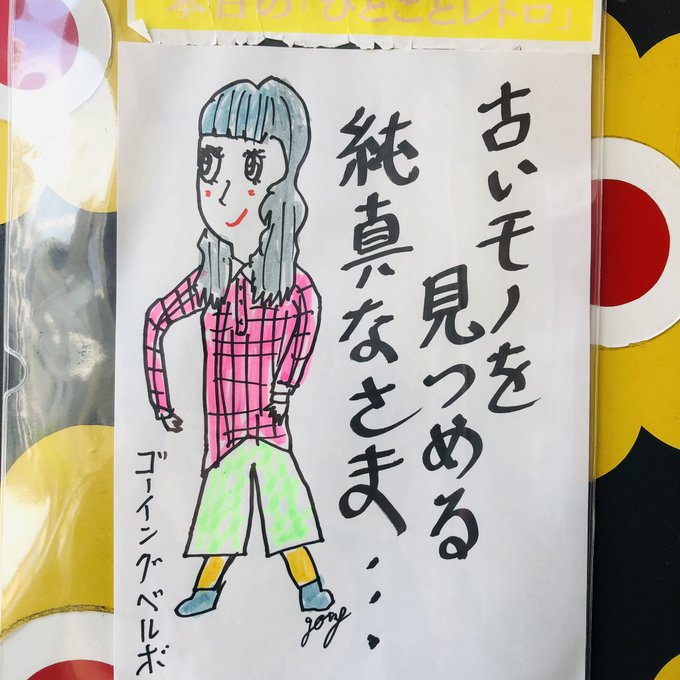 本日の「ひとことレトロ」
古いモノを
見つめる
純真なさま・・・
ゴーイングベルボ